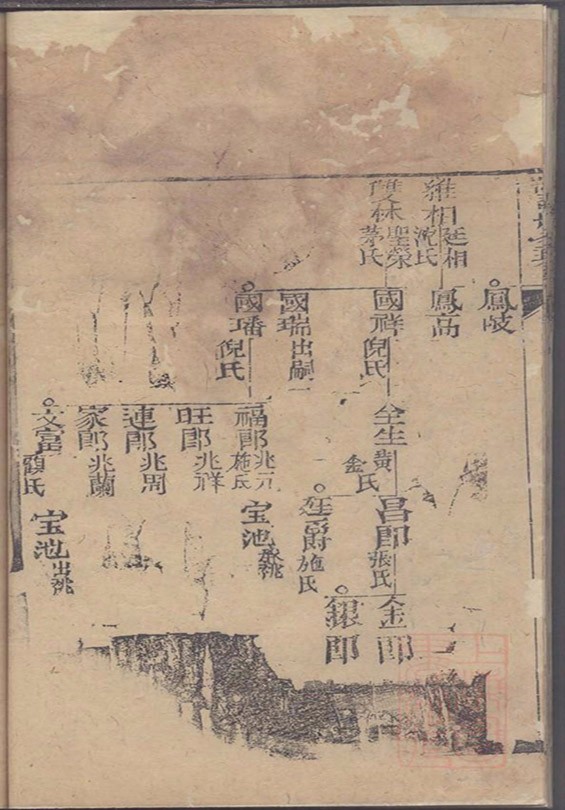 鳳岐
維相廷相沈氏
鳳高
雙林聖榮茅氏
國祥倪氏
全生黄氏
金
昌郎張氏
金郎
銀郎
茬爵施氏
國瑞出嗣一
國璠倪氏
福郎兆元施氏
宝池承祧
旺郎兆祥
連郎兆周
家郎兆蘭
文富顧氏
宝池出祧